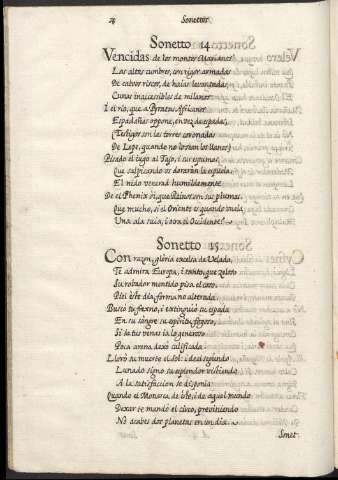 28 Sonettos.
Sonetto 14.
Vencidas de los montes Marianos
Las altas cumbres, con rigor armadas
De calvos riscos, de haias levantadas,
Cunas inaccesibles de milanos.
I el rio, que a Pyratas Africanos
Espadañas oppone, en vez de espadas,
(Testigos son las torres coronadas
De Lope, quando no lo sean los llanos)
Pisado el iugo al Tajo, i sus espumas,
Que salpicando os doraràn la espuela
El nido venerad humildemente
De el Phenix oi, que Reinos son sus plumas.
Que mucho, si el Oriente es quando vuela
Una ala suia, i otra el Occidente?
Sonetto 15.
Con razon, gloria excelsa de Velada,
Te admira Europa, i tanto, que zeloso
Su robador mentido pisa el coso,
Piel este dia, forma no alterada.
Buscò tu fresno, i extinguiò su espada
En su sangre su espiritu fogoso,
Si de tus venas ia lo generoso
Poca arena dexò calificada.
Llorò su muerte el Sol: i del segundo
Lunado signo su esplendor vistiendo
A la satisfaccion se disponia
Quando el Monarca de este, i de aquel mundo
Dexar te mandò el circo, previniendo
No acabes dos planetas en un dia.
Sonet-